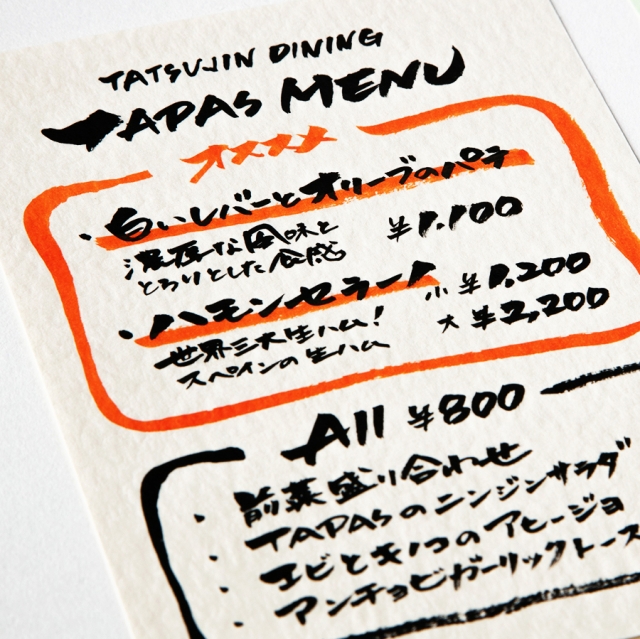 TATSUJIN DINING
TAPAS MENU
オススメ
・白いレバーとオリーブのパテ
¥1,100
濃厚な風味と
とろりとした食感
・ハモンセラーノ
小 ¥1,200
世界三大生ハム!
大 ¥2,200
スペインの生ハム
All ¥800
・前菜盛り合わせ
・TAPASのニンジンサラダ
・エビとキノコのアヒージョ
・アンチョビガーリックトース